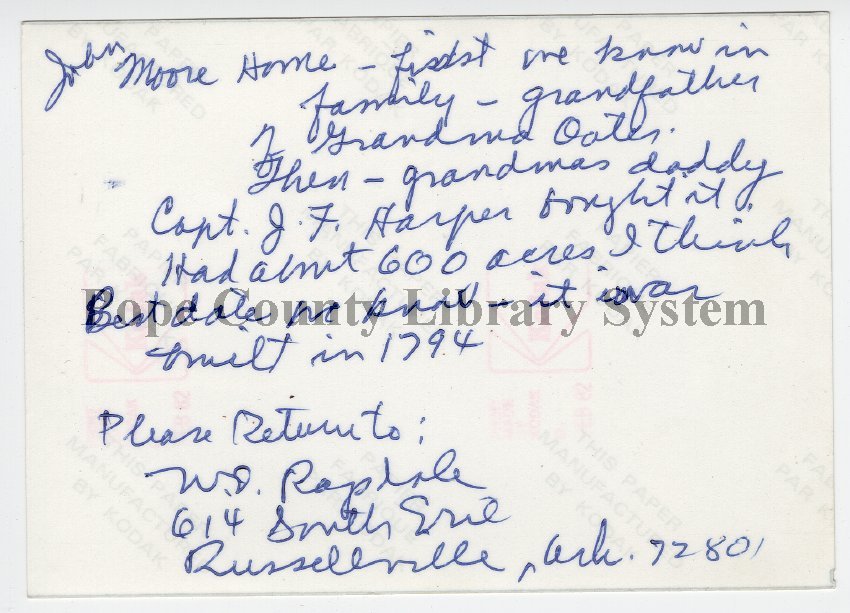 John Moore Home - first one we know in
family - grandfather
of Grandma Oates.
Then - grandmas daddy
Capt. J. F. Harper bought it.
Had about 600 acres I think
Best date we know - it was
built in 1794
Pope County Library System
Please Return to:
W.D. Ragsdale
614 South Erie
Russellville, Ark. 72801
THIS PAPER
MANUFACTURED
BY KODAK